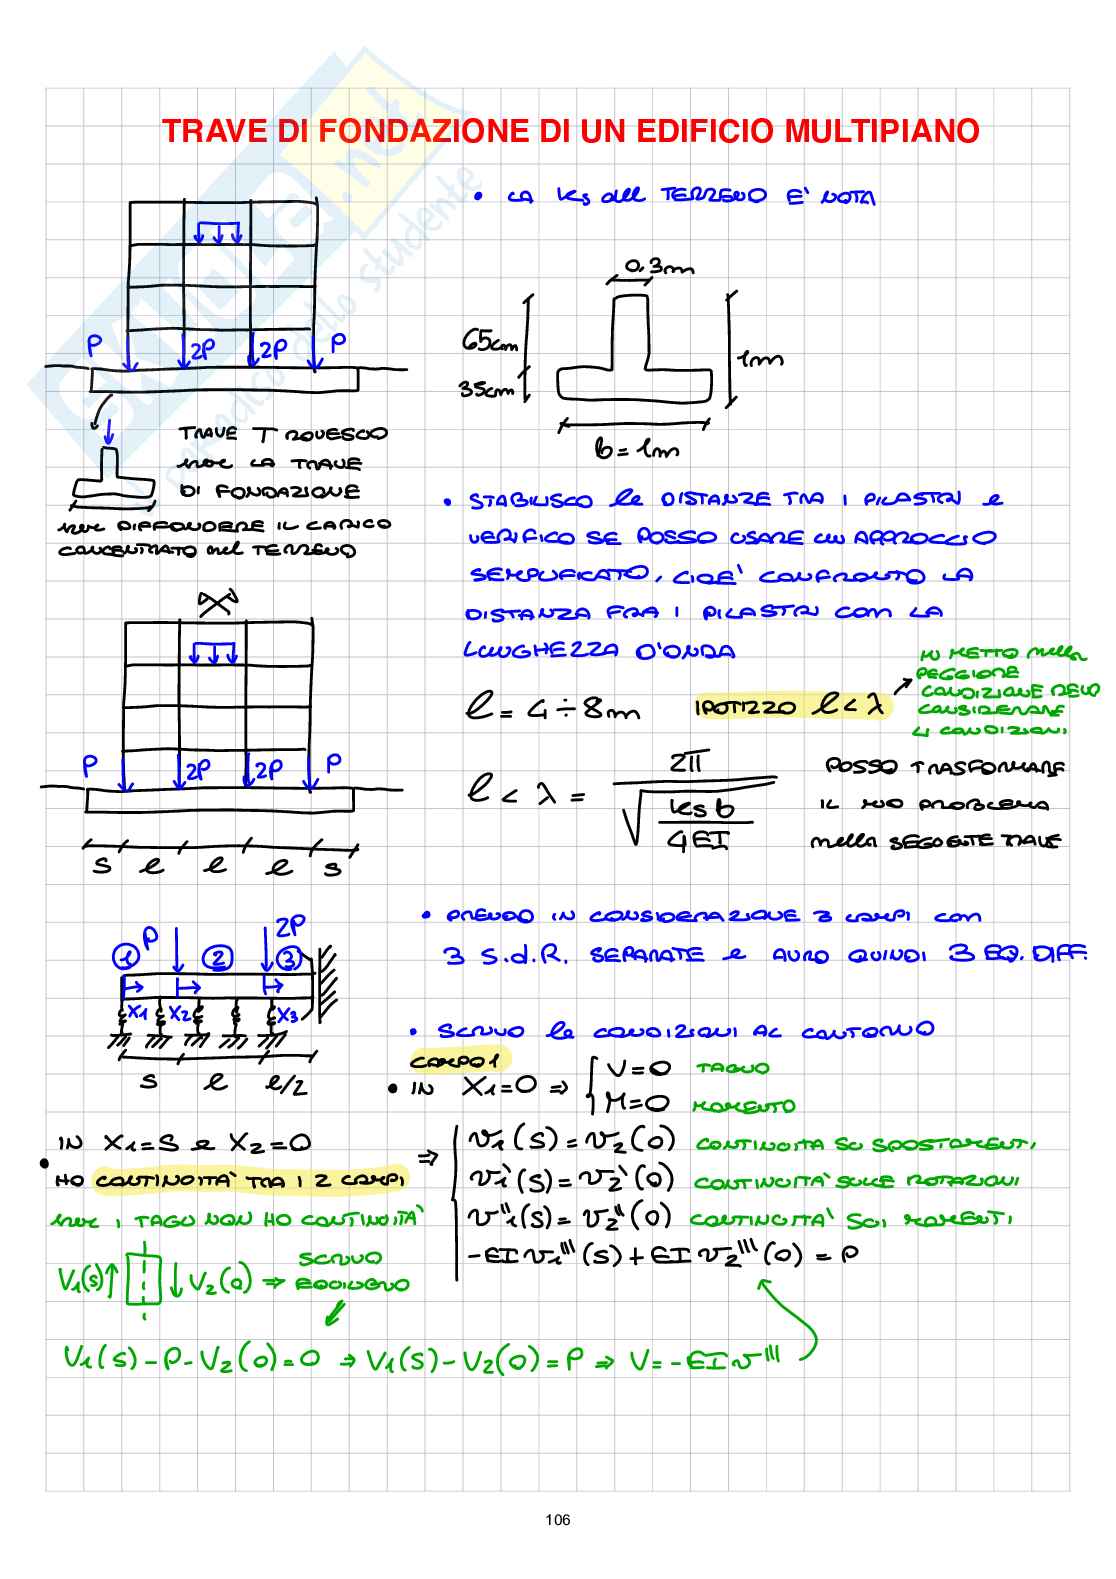 TRAVE DI FONDAZIONE DI UN EDIFICIO MULTIPIANO
• LA ks del TERRENO E' NOTA
P 2P 2P P
0,3m
65cm
35cm
1m
b = 1m
TRAVE T ROVESCIO
LA TRAVE
DI FONDAZIONE
DIFFONDERE IL CARICO
CONCENTRATO nel TERRENO
• STABILISCO le DISTANZE TRA I PILASTRI e
VERIFICO SE POSSO USARE UN APPROCCIO
SEMPLIFICATO, CIOE' CONFRONTO LA
DISTANZA FRA I PILASTRI CON LA
LUNGHEZZA D'ONDA
l = 4 ÷ 8m
IPOTIZZO l < λ
MI METTO nella
PEGGIORE
CONDIZIONE DEVO
CONSIDERARE
4 CONDIZIONI
P 2P 2P P
s l l l s
l < λ = 2π / √ ks b / 4EI
POSSO TRASFORMARE
IL MIO PROBLEMA
nella SEGUENTE TRAVE
• PRENDO IN CONSIDERAZIONE 3 CAMPI con
3 S.d.R. SEPARATE e AVRO QUINDI 3 EQ. DIFF.
1 P 2 2P 3
x1 x2 x3
s l l/2
• SCRIVO le CONDIZIONI AL CONTORNO
CAMPO 1
• IN X1=0 ⇒ { V=0 TAGLIO
M=0 MOMENTO
• IN X1=S e X2=0 ⇒
HO CONTINUITA' TRA I 2 CAMPI
I TAGLI NON HO CONTINUITA'
v1(s) = v2(0) CONTINUITA SU SPOSTAMENTI
v1'(s) = v2'(0) CONTINUITA' SULLE ROTAZIONI
v1''(s) = v2''(0) CONTINUITA' SUI MOMENTI
-EI v1'''(s) + EI v2'''(0) = P
V1(s) ↑ ↓ V2(0) ⇒ SCRIVO
EQUILIBRIO
V1(s) - P - V2(0) = 0 ⇒ V1(s) - V2(0) = P ⇒ V = -EI v'''
106